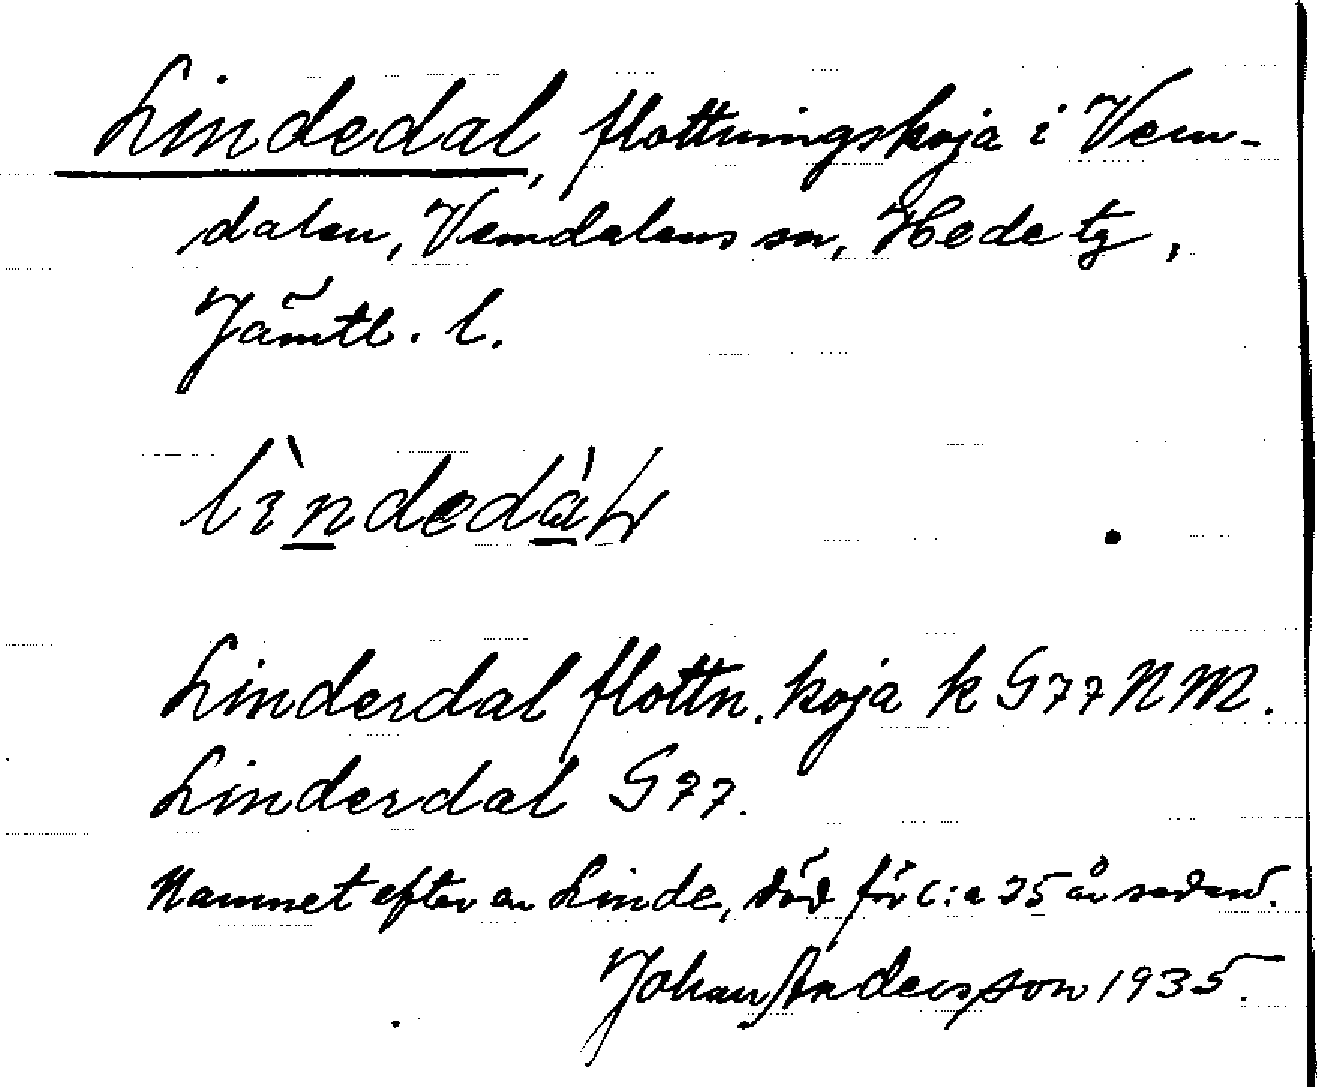 Lindedal, flottningskoja i Vem-
dalen, Vemdalens sn, Hede tg,
Jämtl. l.
lìndedàɫ
Linderdal flottn. koja k G77 NM.
Linderdal G77.
Namnet efter en Linde, död för c:a 25 år sedan.
Johan Andersson 1935.